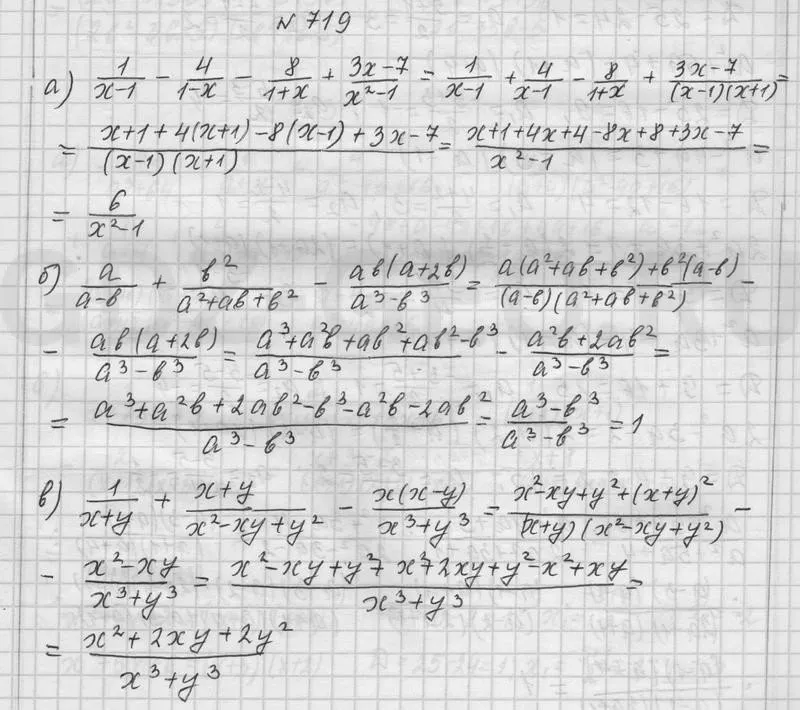 № 719
а) 1/(x-1) - 4/(1-x) - 8/(1+x) + (3x-7)/(x²-1) = 1/(x-1) + 4/(x-1) - 8/(1+x) + (3x-7)/((x-1)(x+1)) =
= (x+1+4(x+1)-8(x-1)+3x-7)/((x-1)(x+1)) = (x+1+4x+4-8x+8+3x-7)/(x²-1) =
= 6/(x²-1)
б) a/(a-в) + в²/(a²+aв+в²) - aв(a+2в)/(a³-в³) = (a(a²+aв+в²)+в²(a-в))/((a-в)(a²+aв+в²)) -
- aв(a+2в)/(a³-в³) = (a³+a²в+aв²+aв²-в³)/(a³-в³) - (a²в+2aв²)/(a³-в³) =
= (a³+a²в+2aв²-в³-a²в-2aв²)/(a³-в³) = (a³-в³)/(a³-в³) = 1
в) 1/(x+y) + (x+y)/(x²-xy+y²) - x(x-y)/(x³+y³) = (x²-xy+y²+(x+y)²)/((x+y)(x²-xy+y²)) -
- (x²-xy)/(x³+y³) = (x²-xy+y²+x²+2xy+y²-x²+xy)/(x³+y³) =
= (x²+2xy+2y²)/(x³+y³)